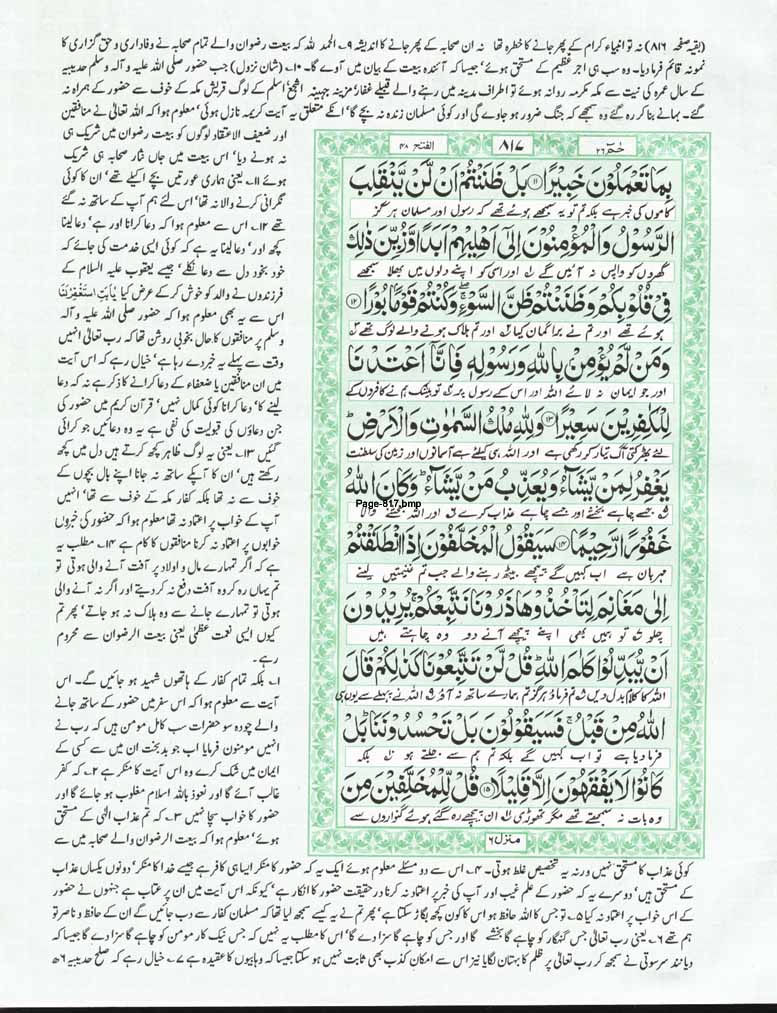 (بقیہ صفحہ ۸۱۶) نہ تو انبیاء کرام کے پھر جانے کا خطرہ تھا نہ ان صحابہ کے پھر جانے کا اندیشہ ۹۔ الحمد للہ کہ بیعت رضوان والے تمام صحابہ نے وفاداری و حق گزاری کا
نمونہ قائم فرما دیا۔ وہ سب ہی اجر عظیم کے مستحق ہوئے' جیسا کہ آئندہ بیعت کے بیان میں آوے گا۔ ۱۰۔ (شان نزول) جب حضور صلی اللہ علیہ و آلہ وسلم حدیبیہ
کے سال عمرہ کی نیت سے مکہ مکرمہ روانہ ہوئے تو اطراف مدینہ میں رہنے والے قبیلے غفار' مزینہ' جہینہ' اشجع' اسلم کے لوگ قریش مکہ کے خوف سے حضور کے ہمراہ نہ
گئے۔ بہانے بنا کر رہ گئے وہ سمجھے کہ جنگ ضرور ہو جاوے گی اور کوئی مسلمان زندہ نہ بچے گا' انکے متعلق یہ آیت کریمہ نازل ہوئی' معلوم ہوا کہ اللہ تعالیٰ نے منافقین
اور ضعیف الاعتقاد لوگوں کو بیعت رضوان میں شریک ہی
نہ ہونے دیا' اس بیعت میں جاں نثار صحابہ ہی شریک
ہوئے ۱۱۔ یعنی ہماری عورتیں بچے اکیلے تھے' ان کا کوئی
نگرانی کرنے والا نہ تھا' اس لئے ہم آپ کے ساتھ نہ گئے
تھے ۱۲۔ اس سے معلوم ہوا کہ دعا کرانا اور ہے' دعا لینا
کچھ اور' دعا لینا یہ ہے کہ کوئی ایسی خدمت کی جائے کہ
خود بخود دل سے دعا نکلے' جیسے یعقوب علیہ السلام کے
فرزندوں نے والد کو خوش کر کے عرض کیا یٰاَبَتِ اسْتَغْفِرْلَنَا
اس سے یہ بھی معلوم ہوا کہ حضور صلی اللہ علیہ و آلہ
وسلم پر منافقوں کا حال بخوبی روشن تھا کہ رب تعالیٰ انہیں
وقت سے پہلے یہ خبر دے رہا ہے' خیال رہے کہ اس آیت
میں ان منافقین یا ضعفاء کے دعا کرانے کا ذکر ہے نہ کہ دعا
لینے کا' دعا کرانا کوئی کمال نہیں' قرآن کریم میں حضور کی
جن دعاؤں کی قبولیت کی نفی ہے یہ وہ دعائیں جو کرائی
گئیں ۱۳۔ یعنی یہ لوگ ظاہر کچھ کرتے ہیں دل میں کچھ
رکھتے ہیں' ان کا آپکے ساتھ نہ جانا اپنے بال بچوں کے
خوف سے نہ تھا بلکہ کفار مکہ کے خوف سے تھا' انہیں
آپ کے خواب پر اعتماد نہ تھا معلوم ہوا کہ حضور کی خبروں
خوابوں پر اعتماد نہ کرنا منافقوں کا کام ہے ۱۴۔ مطلب یہ
ہے کہ اگر تمہارے مال و اولاد پر آفت آنے والی ہوتی تو
تم یہاں رہ کر وہ آفت دفع نہ کر دیتے اور اگر نہ آنے والی
ہوتی تو تمہارے جانے سے وہ ہلاک نہ ہو جاتے' پھر تم
کیوں ایسی نعمت عظمیٰ یعنی بیعت الرضوان سے محروم
رہے۔
۱۔ بلکہ تمام کفار کے ہاتھوں شہید ہو جائیں گے۔ اس
آیت سے معلوم ہوا کہ اس سفر میں حضور کے ساتھ جانے
والے چودہ سو حضرات سب کامل مومن ہیں کہ رب نے
انہیں مومنون فرمایا اب جو بد بخت ان میں سے کسی کے
ایمان میں شک کرے وہ اس آیت کا منکر ہے ۲۔ کہ کفر
غالب آئے گا اور نعوذ باللہ اسلام مغلوب ہو جائے گا اور
حضور کا خواب سچا نہیں ۳۔ کہ تم عذاب الٰہی کے مستحق
ہوئے' معلوم ہوا کہ بیعت الرضوان والے صحابہ میں سے
حٰمٓ ۲۶
۸۱۷
الفتح ۴۸
بِمَا تَعْمَلُوْنَ خَبِیْرًا ۝۱۱ بَلْ ظَنَنْتُمْ اَنْ لَّنْ یَّنْقَلِبَ
کاموں کی خبر ہے بلکہ تم تو یہ سمجھے ہوئے تھے کہ رسول اور مسلمان ہر گز
الرَّسُوْلُ وَالْمُؤْمِنُوْنَ اِلٰۤی اَهْلِیْهِمْ اَبَدًا وَّ زُیِّنَ ذٰلِكَ
گھروں کو واپس نہ آئیں گے ۱ اور اسی کو اپنے دلوں میں بھلا سمجھے
فِیْ قُلُوْبِكُمْ وَ ظَنَنْتُمْ ظَنَّ السَّوْءِ ۖۚ وَ كُنْتُمْ قَوْمًۢا بُوْرًا ۝۱۲
ہوئے تھے اور تم نے برا گمان کیا ۲ اور تم ہلاک ہونے والے لوگ تھے ۳
وَ مَنْ لَّمْ یُؤْمِنْۢ بِاللّٰهِ وَ رَسُوْلِهٖ فَاِنَّاۤ اَعْتَدْنَا
اور جو ایمان نہ لائے اللہ اور اس کے رسول پر ۴ تو بیشک ہم نے کافروں کے
لِلْكٰفِرِیْنَ سَعِیْرًا ۝۱۳ وَ لِلّٰهِ مُلْكُ السَّمٰوٰتِ وَ الْاَرْضِ ؕ
لئے بھڑکتی آگ تیار کر رکھی ہے اور اللہ ہی کیلئے ہے آسمانوں اور زمین کی سلطنت
یَغْفِرُ لِمَنْ یَّشَآءُ وَ یُعَذِّبُ مَنْ یَّشَآءُ ؕ وَ كَانَ اللّٰهُ
Page-817.bmp
۵ جسے چاہے بخشے اور جسے چاہے عذاب کرے ۶ اور اللہ بخشنے والا
غَفُوْرًا رَّحِیْمًا ۝۱۴ سَیَقُوْلُ الْمُخَلَّفُوْنَ اِذَا انْطَلَقْتُمْ
مہربان ہے اب کہیں گے پیچھے بیٹھ رہنے والے جب تم غنیمتیں لینے
اِلٰی مَغَانِمَ لِتَاْخُذُوْهَا ذَرُوْنَا نَتَّبِعْكُمْ ۚ یُرِیْدُوْنَ
چلو ۷ تو ہمیں بھی اپنے پیچھے آنے دو وہ چاہتے ہیں
اَنْ یُّبَدِّلُوْا كَلٰمَ اللّٰهِ ؕ قُلْ لَّنْ تَتَّبِعُوْنَا كَذٰلِكُمْ قَالَ
اللہ کا کلام بدل دیں ۸ تم فرماؤ ہر گز تم ہمارے ساتھ نہ آؤ ۹ اللہ نے پہلے سے یوں ہی
اللّٰهُ مِنْ قَبْلُ ۚ فَسَیَقُوْلُوْنَ بَلْ تَحْسُدُوْنَنَا ؕ بَلْ
فرما دیا ہے تو اب کہیں گے بلکہ تم ہم سے جلتے ہو ۱۰ بلکہ
كَانُوْا لَا یَفْقَهُوْنَ اِلَّا قَلِیْلًا ۝۱۵ قُلْ لِّلْمُخَلَّفِیْنَ مِنَ
وہ بات نہ سمجھتے تھے مگر تھوڑی ۱۱ ان پیچھے رہ گئے ہوئے گنواروں سے
منزل ۶
کوئی عذاب کا مستحق نہیں ورنہ یہ تخصیص غلط ہوتی۔ ۴۔ اس سے دو مسئلے معلوم ہوئے ایک یہ کہ حضور کا منکر ایسا ہی کافر ہے جیسے خدا کا منکر' دونوں یکساں عذاب
کے مستحق ہیں' دوسرے یہ کہ حضور کے علم غیب اور آپ کی خبر پر اعتماد نہ کرنا در حقیقت حضور کا انکار ہے' کیونکہ اس آیت میں ان پر عتاب ہے جنہوں نے حضور
کے اس خواب پر اعتماد نہ کیا ۵۔ تو جس کا اللہ حافظ ہو اس کا کون کچھ بگاڑ سکتا ہے' پھر تم نے یہ کیسے سمجھ لیا تھا کہ مسلمان کفار سے دب جائیں گے ان کے حافظ و ناصر تو
ہم تھے ۶۔ یعنی رب تعالیٰ جس گنہگار کو چاہے گا بخشے گا اور جس کو چاہے گا سزا دے گا' اس کا مطلب یہ نہیں کہ جس نیک کار مومن کو چاہے گا سزا دے گا جیسا کہ
دیانند سرسوتی نے سمجھ کر رب تعالیٰ پر ظلم کا بہتان لگایا نیز اس سے امکان کذب بھی ثابت نہیں ہو سکتا جیسا کہ وہابیوں کا عقیدہ ہے ۷۔ خیال رہے کہ صلح حدیبیہ ۶ھ